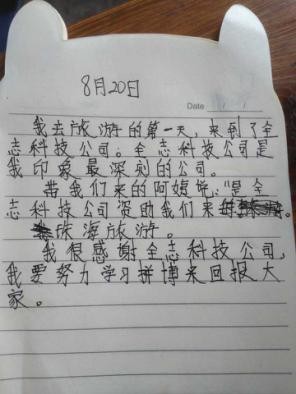 8月20日
Date
我去旅游的第一天,来到了全
志科技公司。全志科技公司是
我印象最深刻的公司。
带我们来的阿姨说:"是全
志科技公司资助我们来
珠海旅游。
我很感谢全志科技公司,
我要努力学习拼博来回报大
家。